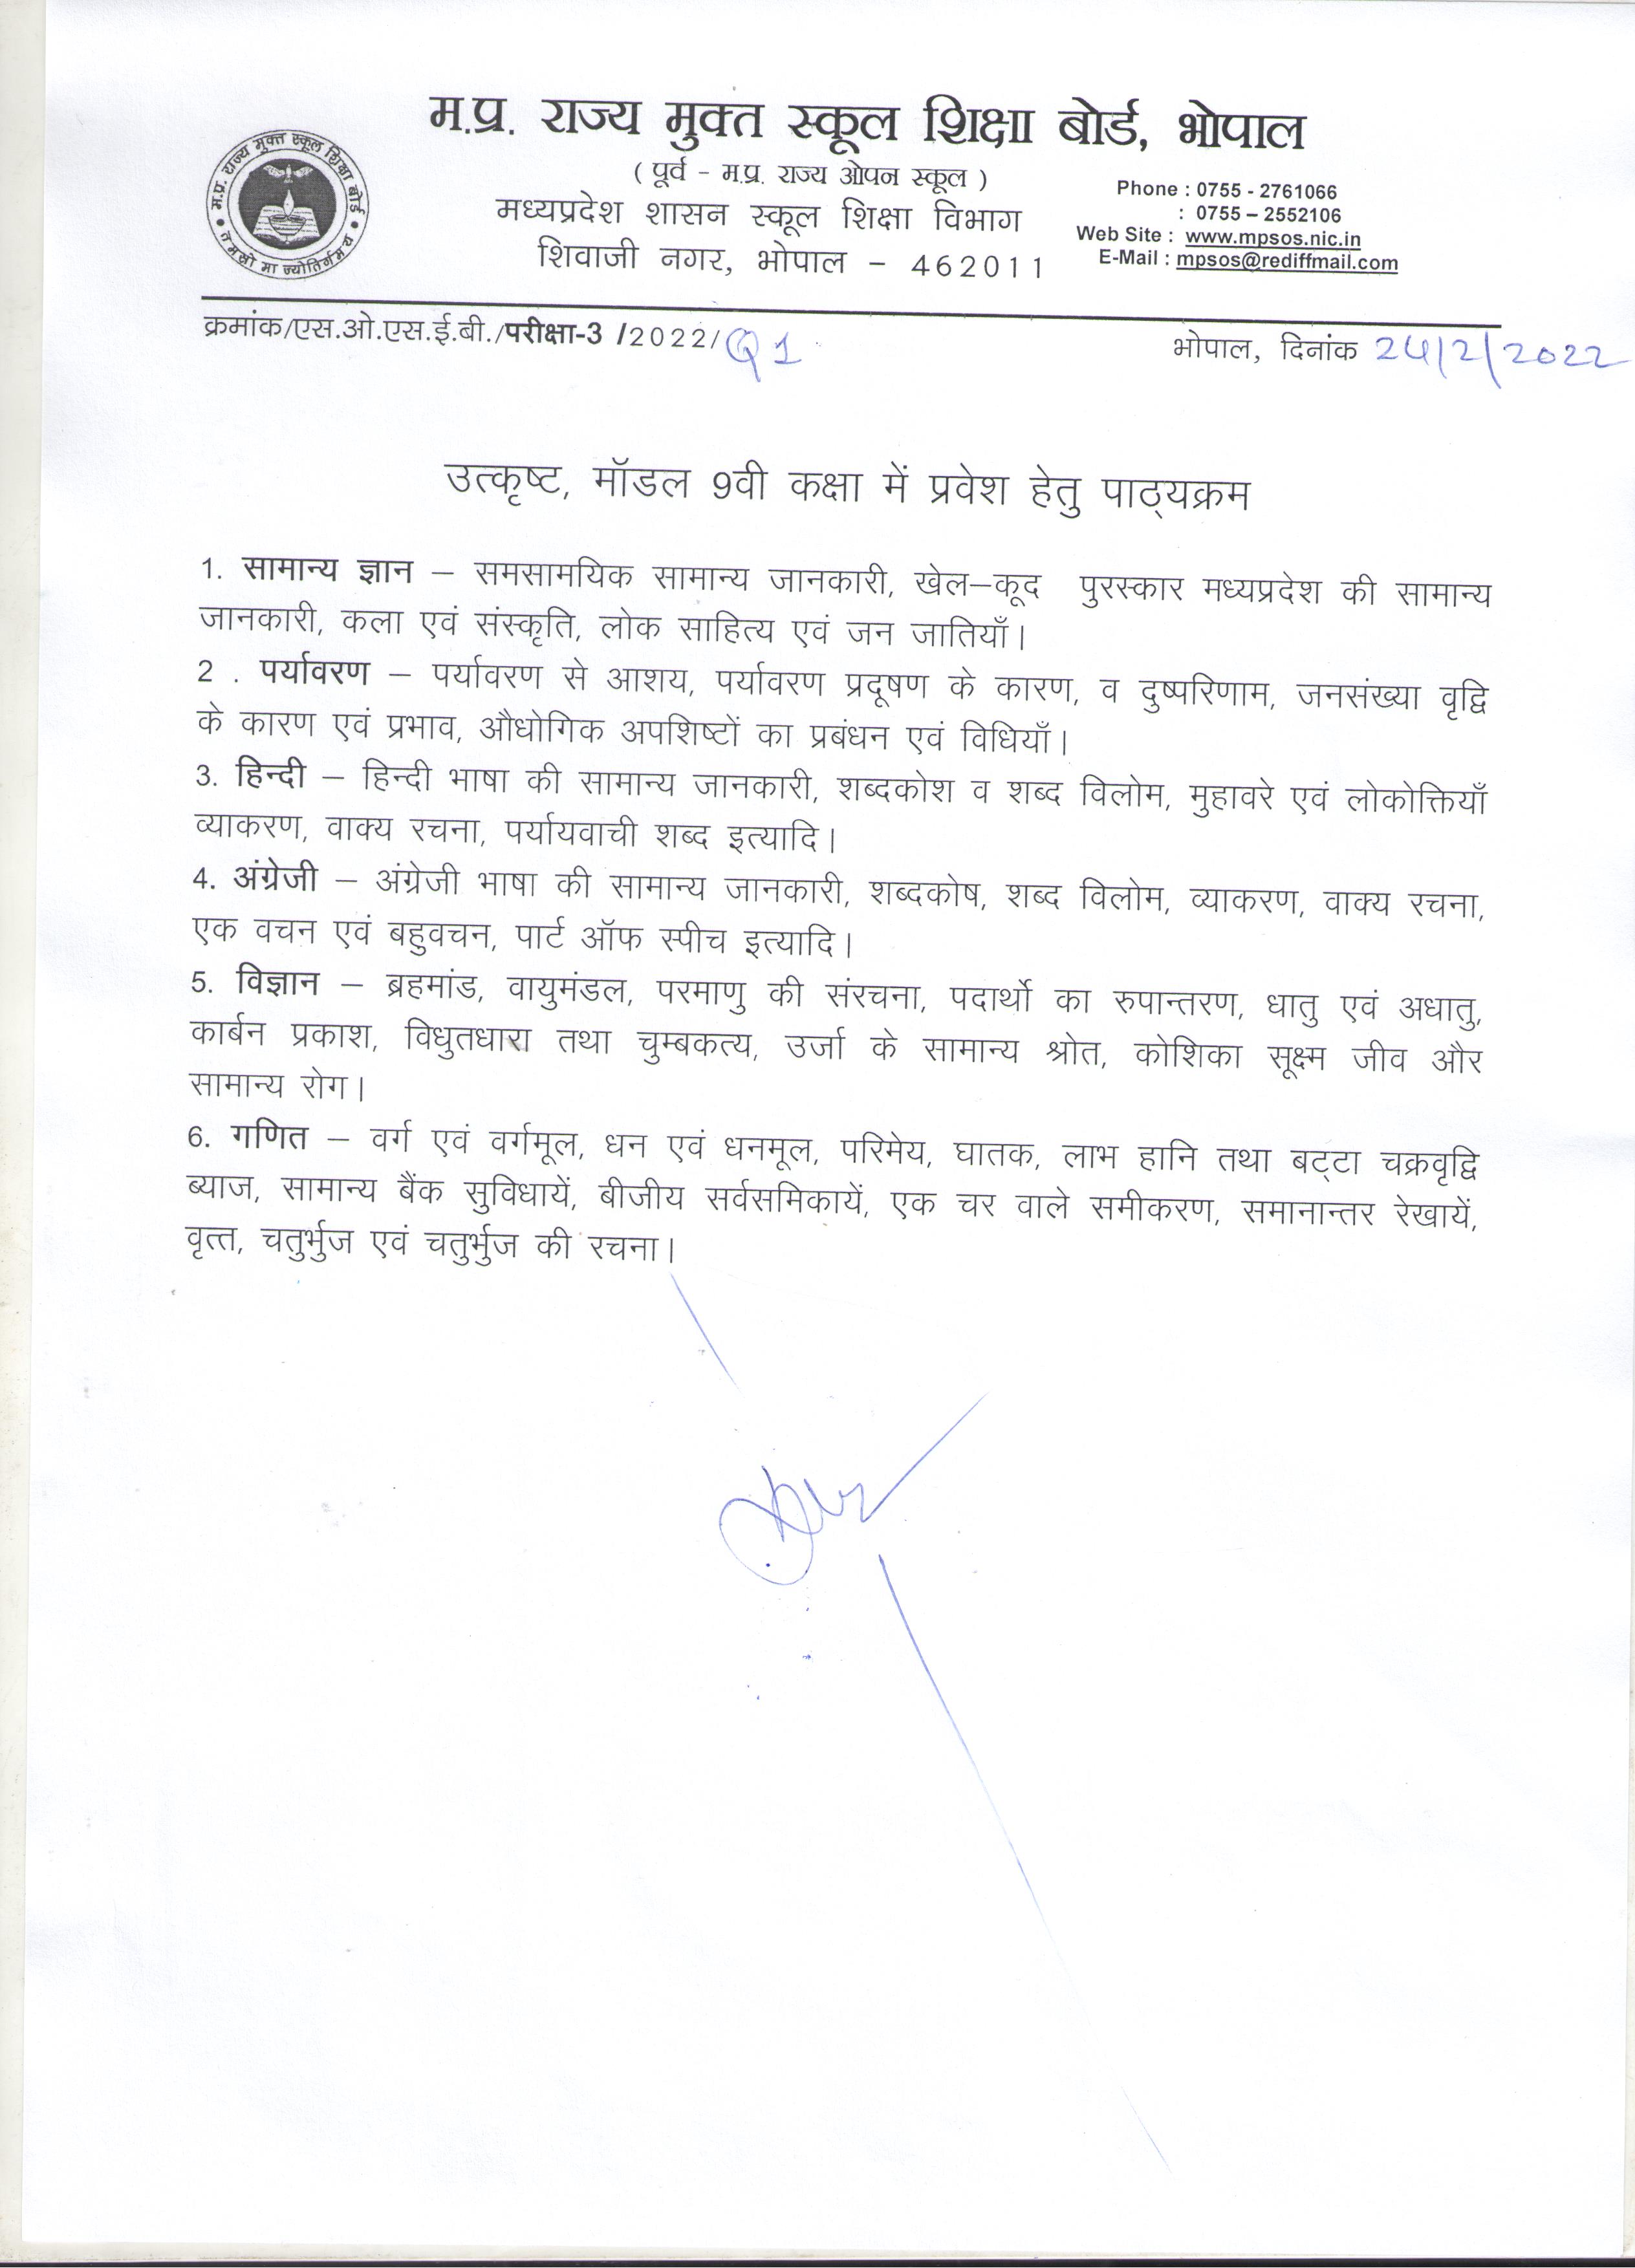 म.प्र. राज्य मुक्त स्कूल शिक्षा बोर्ड, भोपाल
( पूर्व - म.प्र. राज्य ओपन स्कूल )
मध्यप्रदेश शासन स्कूल शिक्षा विभाग
शिवाजी नगर, भोपाल - 462011
Phone : 0755 - 2761066
: 0755 – 2552106
Web Site : www.mpsos.nic.in
E-Mail : mpsos@rediffmail.com
म.प्र. राज्य मुक्त स्कूल शिक्षा बोर्ड
क्रमांक/एस.ओ.एस.ई.बी./परीक्षा-3 /2022/
भोपाल, दिनांक 24/2/2022
उत्कृष्ट, मॉडल 9वी कक्षा में प्रवेश हेतु पाठ्यक्रम
1. सामान्य ज्ञान – समसामयिक सामान्य जानकारी, खेल–कूद पुरस्कार मध्यप्रदेश की सामान्य
जानकारी, कला एवं संस्कृति, लोक साहित्य एवं जन जातियाँ।
2 . पर्यावरण – पर्यावरण से आशय, पर्यावरण प्रदूषण के कारण, व दुष्परिणाम, जनसंख्या वृद्वि
के कारण एवं प्रभाव, औधोगिक अपशिष्टों का प्रबंधन एवं विधियाँ।
3. हिन्दी – हिन्दी भाषा की सामान्य जानकारी, शब्दकोश व शब्द विलोम, मुहावरे एवं लोकोक्तियाँ
व्याकरण, वाक्य रचना, पर्यायवाची शब्द इत्यादि।
4. अंग्रेजी – अंग्रेजी भाषा की सामान्य जानकारी, शब्दकोष, शब्द विलोम, व्याकरण, वाक्य रचना,
एक वचन एवं बहुवचन, पार्ट ऑफ स्पीच इत्यादि।
5. विज्ञान – ब्रहमांड, वायुमंडल, परमाणु की संरचना, पदार्थो का रुपान्तरण, धातु एवं अधातु,
कार्बन प्रकाश, विधुतधारा तथा चुम्बकत्य, उर्जा के सामान्य श्रोत, कोशिका सूक्ष्म जीव और
सामान्य रोग।
6. गणित – वर्ग एवं वर्गमूल, धन एवं धनमूल, परिमेय, घातक, लाभ हानि तथा बट्टा चक्रवृद्वि
ब्याज, सामान्य बैंक सुविधायें, बीजीय सर्वसमिकायें, एक चर वाले समीकरण, समानान्तर रेखायें,
वृत्त, चतुर्भुज एवं चतुर्भुज की रचना।